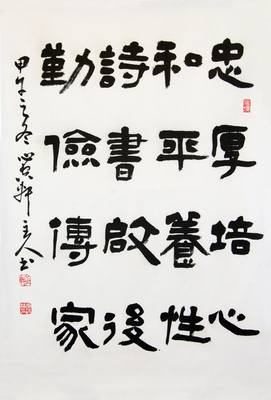 忠厚培心
和平養性
詩書啟後
勤儉傳家
甲午之冬
主人書